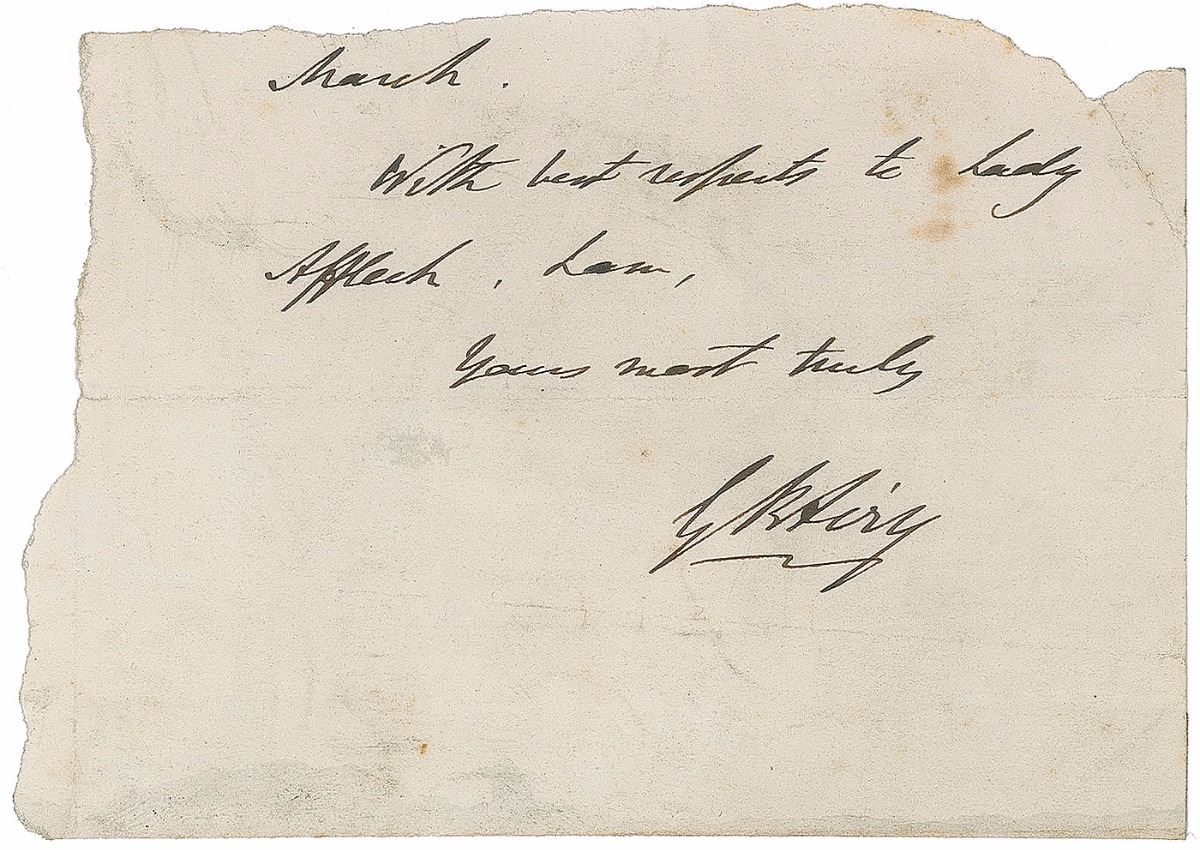 March.
With best respects to Lady
Affleck, I am,
Yours most truly
G B Airy